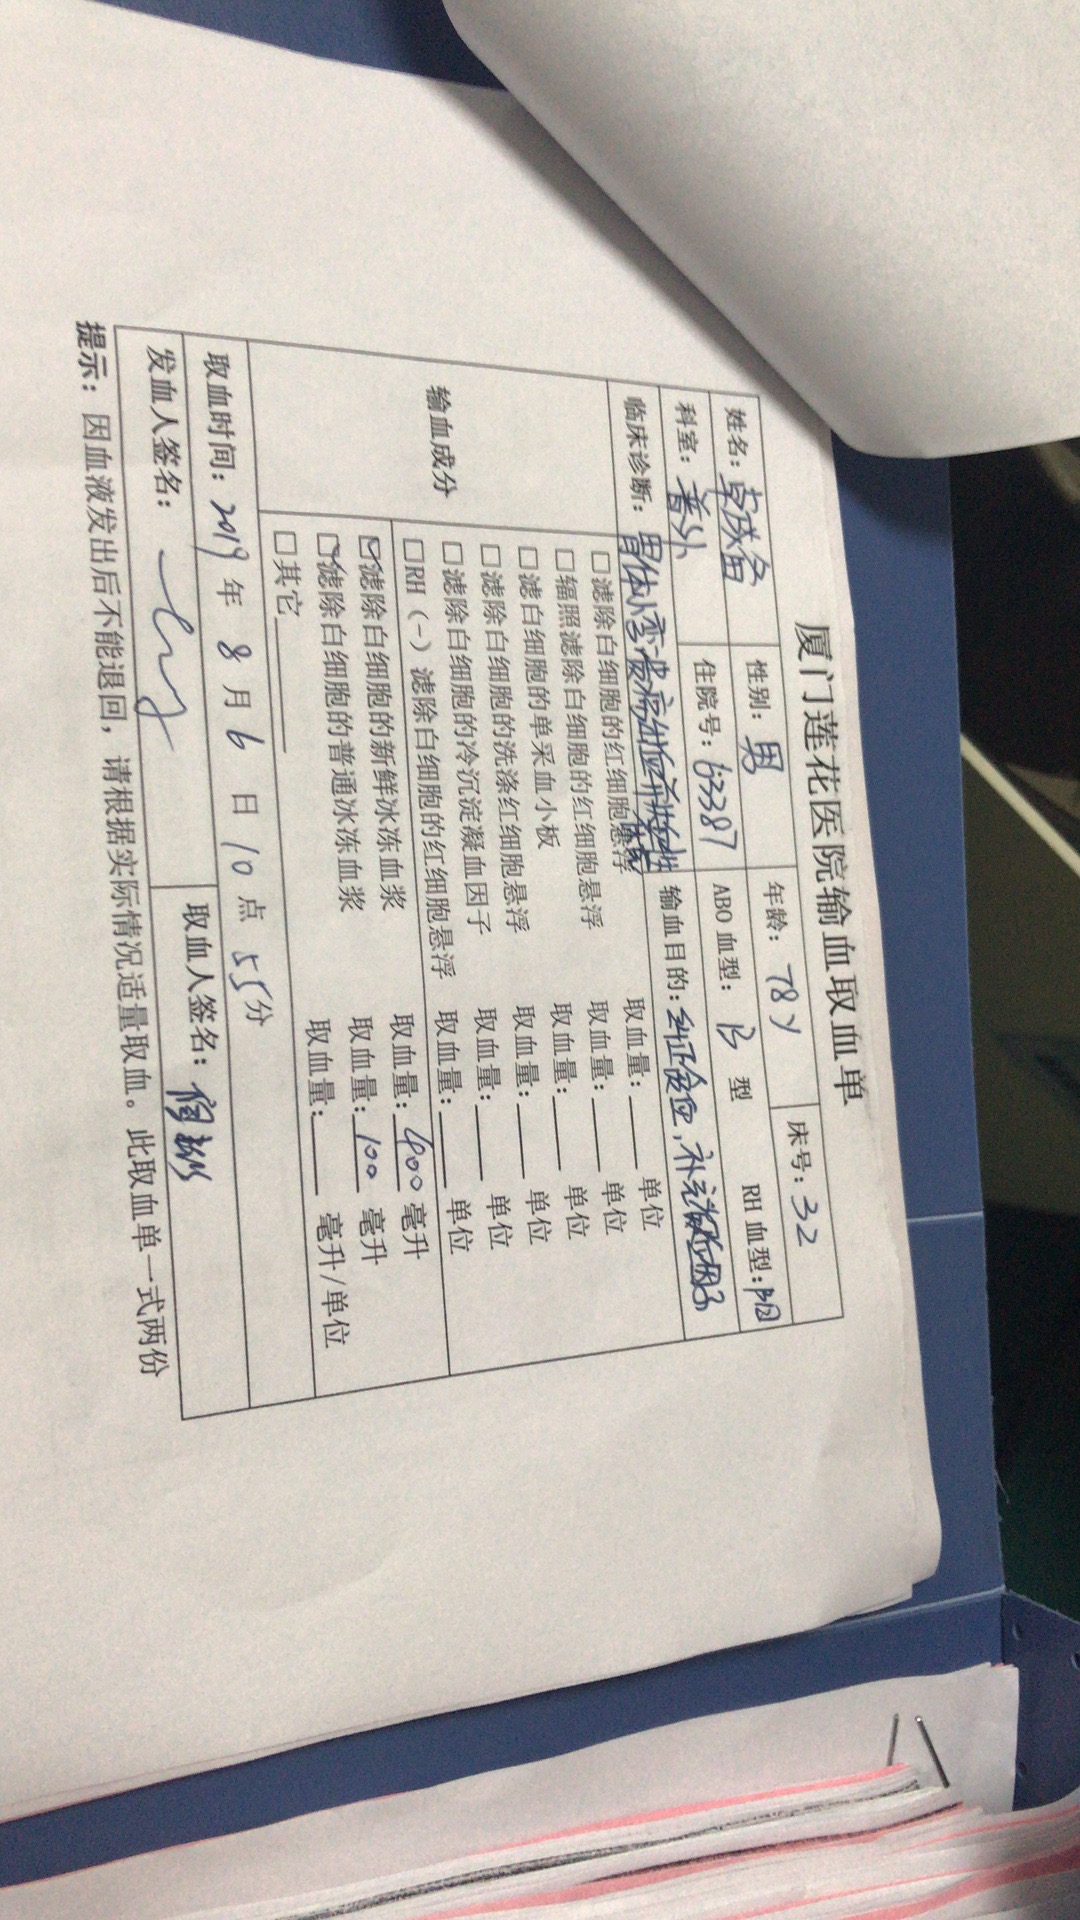 厦门莲花医院输血取血单
姓名： 性别：男 年龄：78y 床号：32
科室：普外 住院号：63387 ABO 血型：B 型 RH 血型：阳
临床诊断：胃体小弯 输血目的：纠正贫血，补充凝血因子
输血成分
□滤除白细胞的红细胞悬浮 取血量：____单位
□辐照滤除白细胞的红细胞悬浮 取血量：____单位
□滤白细胞的单采血小板 取血量：____单位
□滤除白细胞的洗涤红细胞悬浮 取血量：____单位
□滤除白细胞的冷沉淀凝血因子 取血量：____单位
□RH（-）滤除白细胞的红细胞悬浮 取血量：____单位
☑滤除白细胞的新鲜冰冻血浆 取血量：400毫升
☑滤除白细胞的普通冰冻血浆 取血量：100毫升
□其它________ 取血量：____毫升/单位
取血时间：2019年8月6日10点55分
发血人签名： 取血人签名：
提示：因血液发出后不能退回，请根据实际情况适量取血。此取血单一式两份